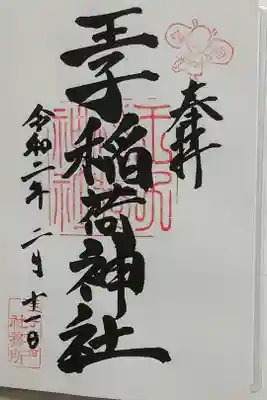 奉拝
王子稲荷神社
令和二年二月十一日